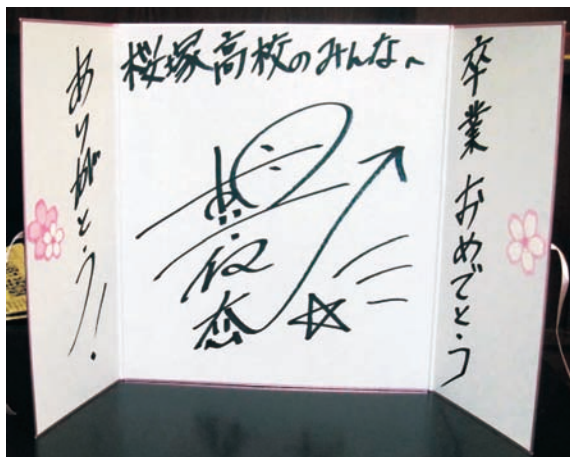 卒業おめでとう
桜塚高校のみんなへ
ありがとう!